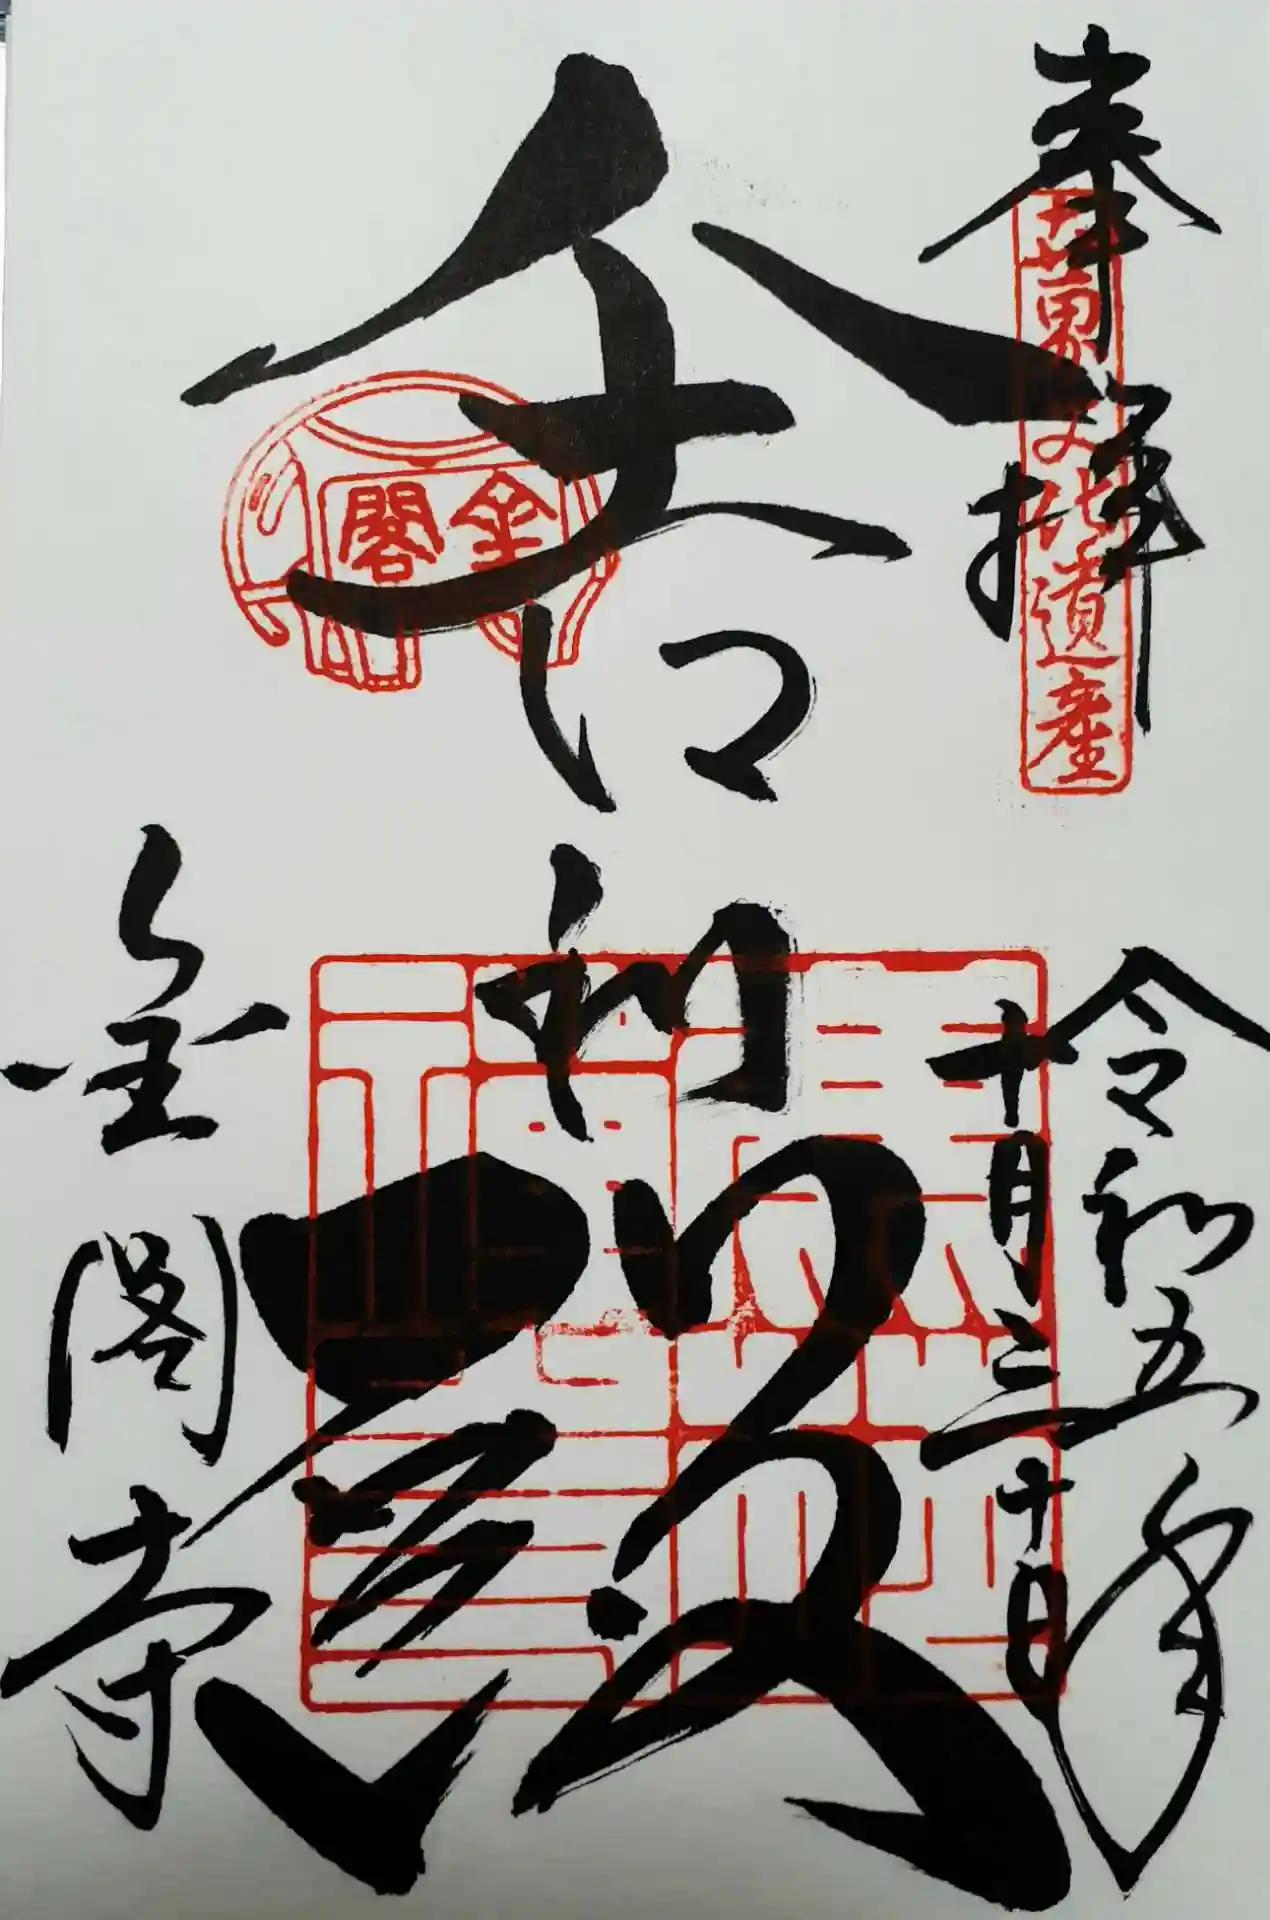 奉拝
世界文化遺産
令和五年
十月三十日
舎利殿
金閣
金閣寺